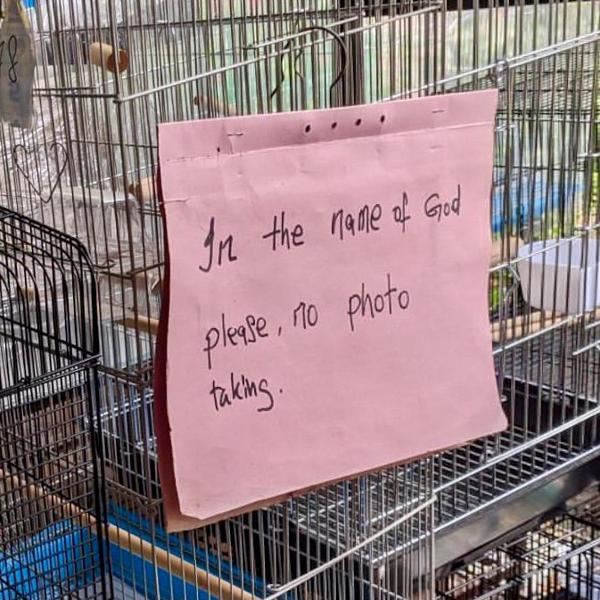 In the name of God
please, no photo
taking.